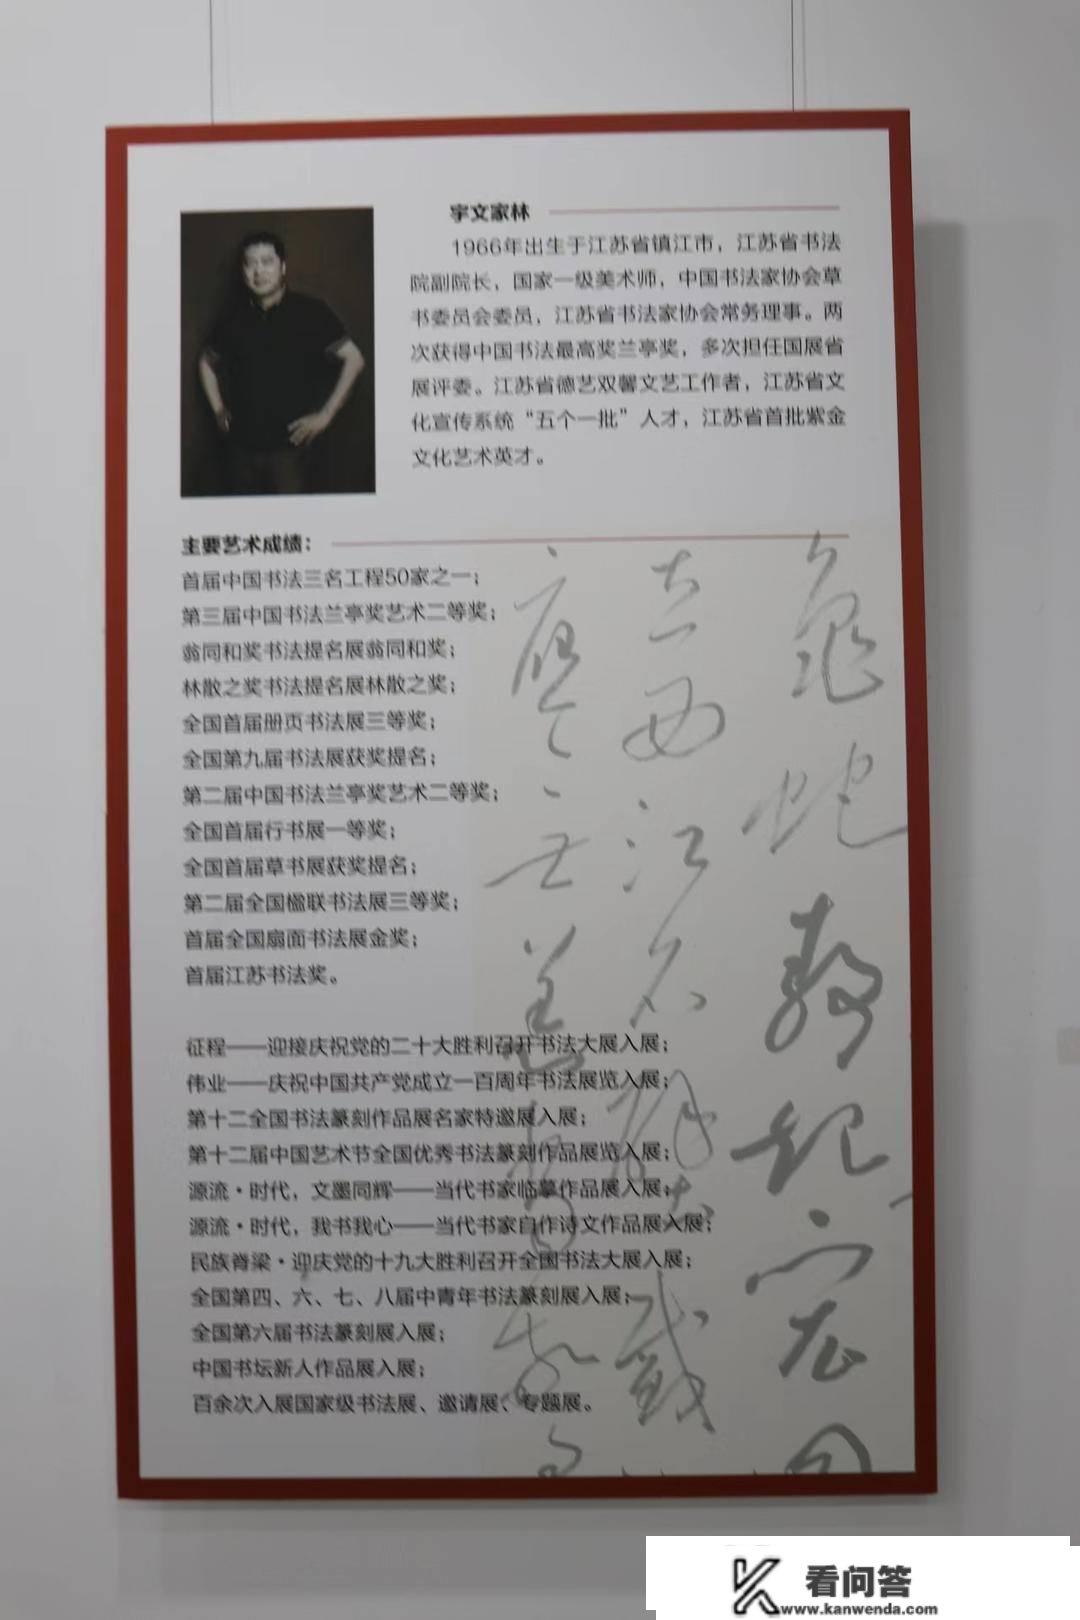 宇文家林
1966年出生于江苏省镇江市，江苏省书法
院副院长，国家一级美术师，中国书法家协会草
书委员会委员，江苏省书法家协会常务理事。两
次获得中国书法最高奖兰亭奖，多次担任国展省
展评委。江苏省德艺双馨文艺工作者，江苏省文
化宣传系统“五个一批”人才，江苏省首批紫金
文化艺术英才。
主要艺术成绩：
首届中国书法三名工程50家之一；
第三届中国书法兰亭奖艺术二等奖；
翁同和奖书法提名展翁同和奖；
林散之奖书法提名展林散之奖；
全国首届册页书法展三等奖；
全国第九届书法展获奖提名；
第二届中国书法兰亭奖艺术二等奖；
全国首届行书展一等奖；
全国首届草书展获奖提名；
第二届全国楹联书法展三等奖；
首届全国扇面书法展金奖；
首届江苏书法奖。
征程——迎接庆祝党的二十大胜利召开书法大展入展；
伟业——庆祝中国共产党成立一百周年书法展览入展；
第十二全国书法篆刻作品展名家特邀展入展；
第十二届中国艺术节全国优秀书法篆刻作品展览入展；
源流·时代，文墨同辉——当代书家临摹作品展入展；
源流·时代，我书我心——当代书家自作诗文作品展入展；
民族脊梁·迎庆党的十九大胜利召开全国书法大展入展；
全国第四、六、七、八届中青年书法篆刻展入展；
全国第六届书法篆刻展入展；
中国书坛新人作品展入展；
百余次入展国家级书法展、邀请展、专题展。
看问答
www.kanwenda.com